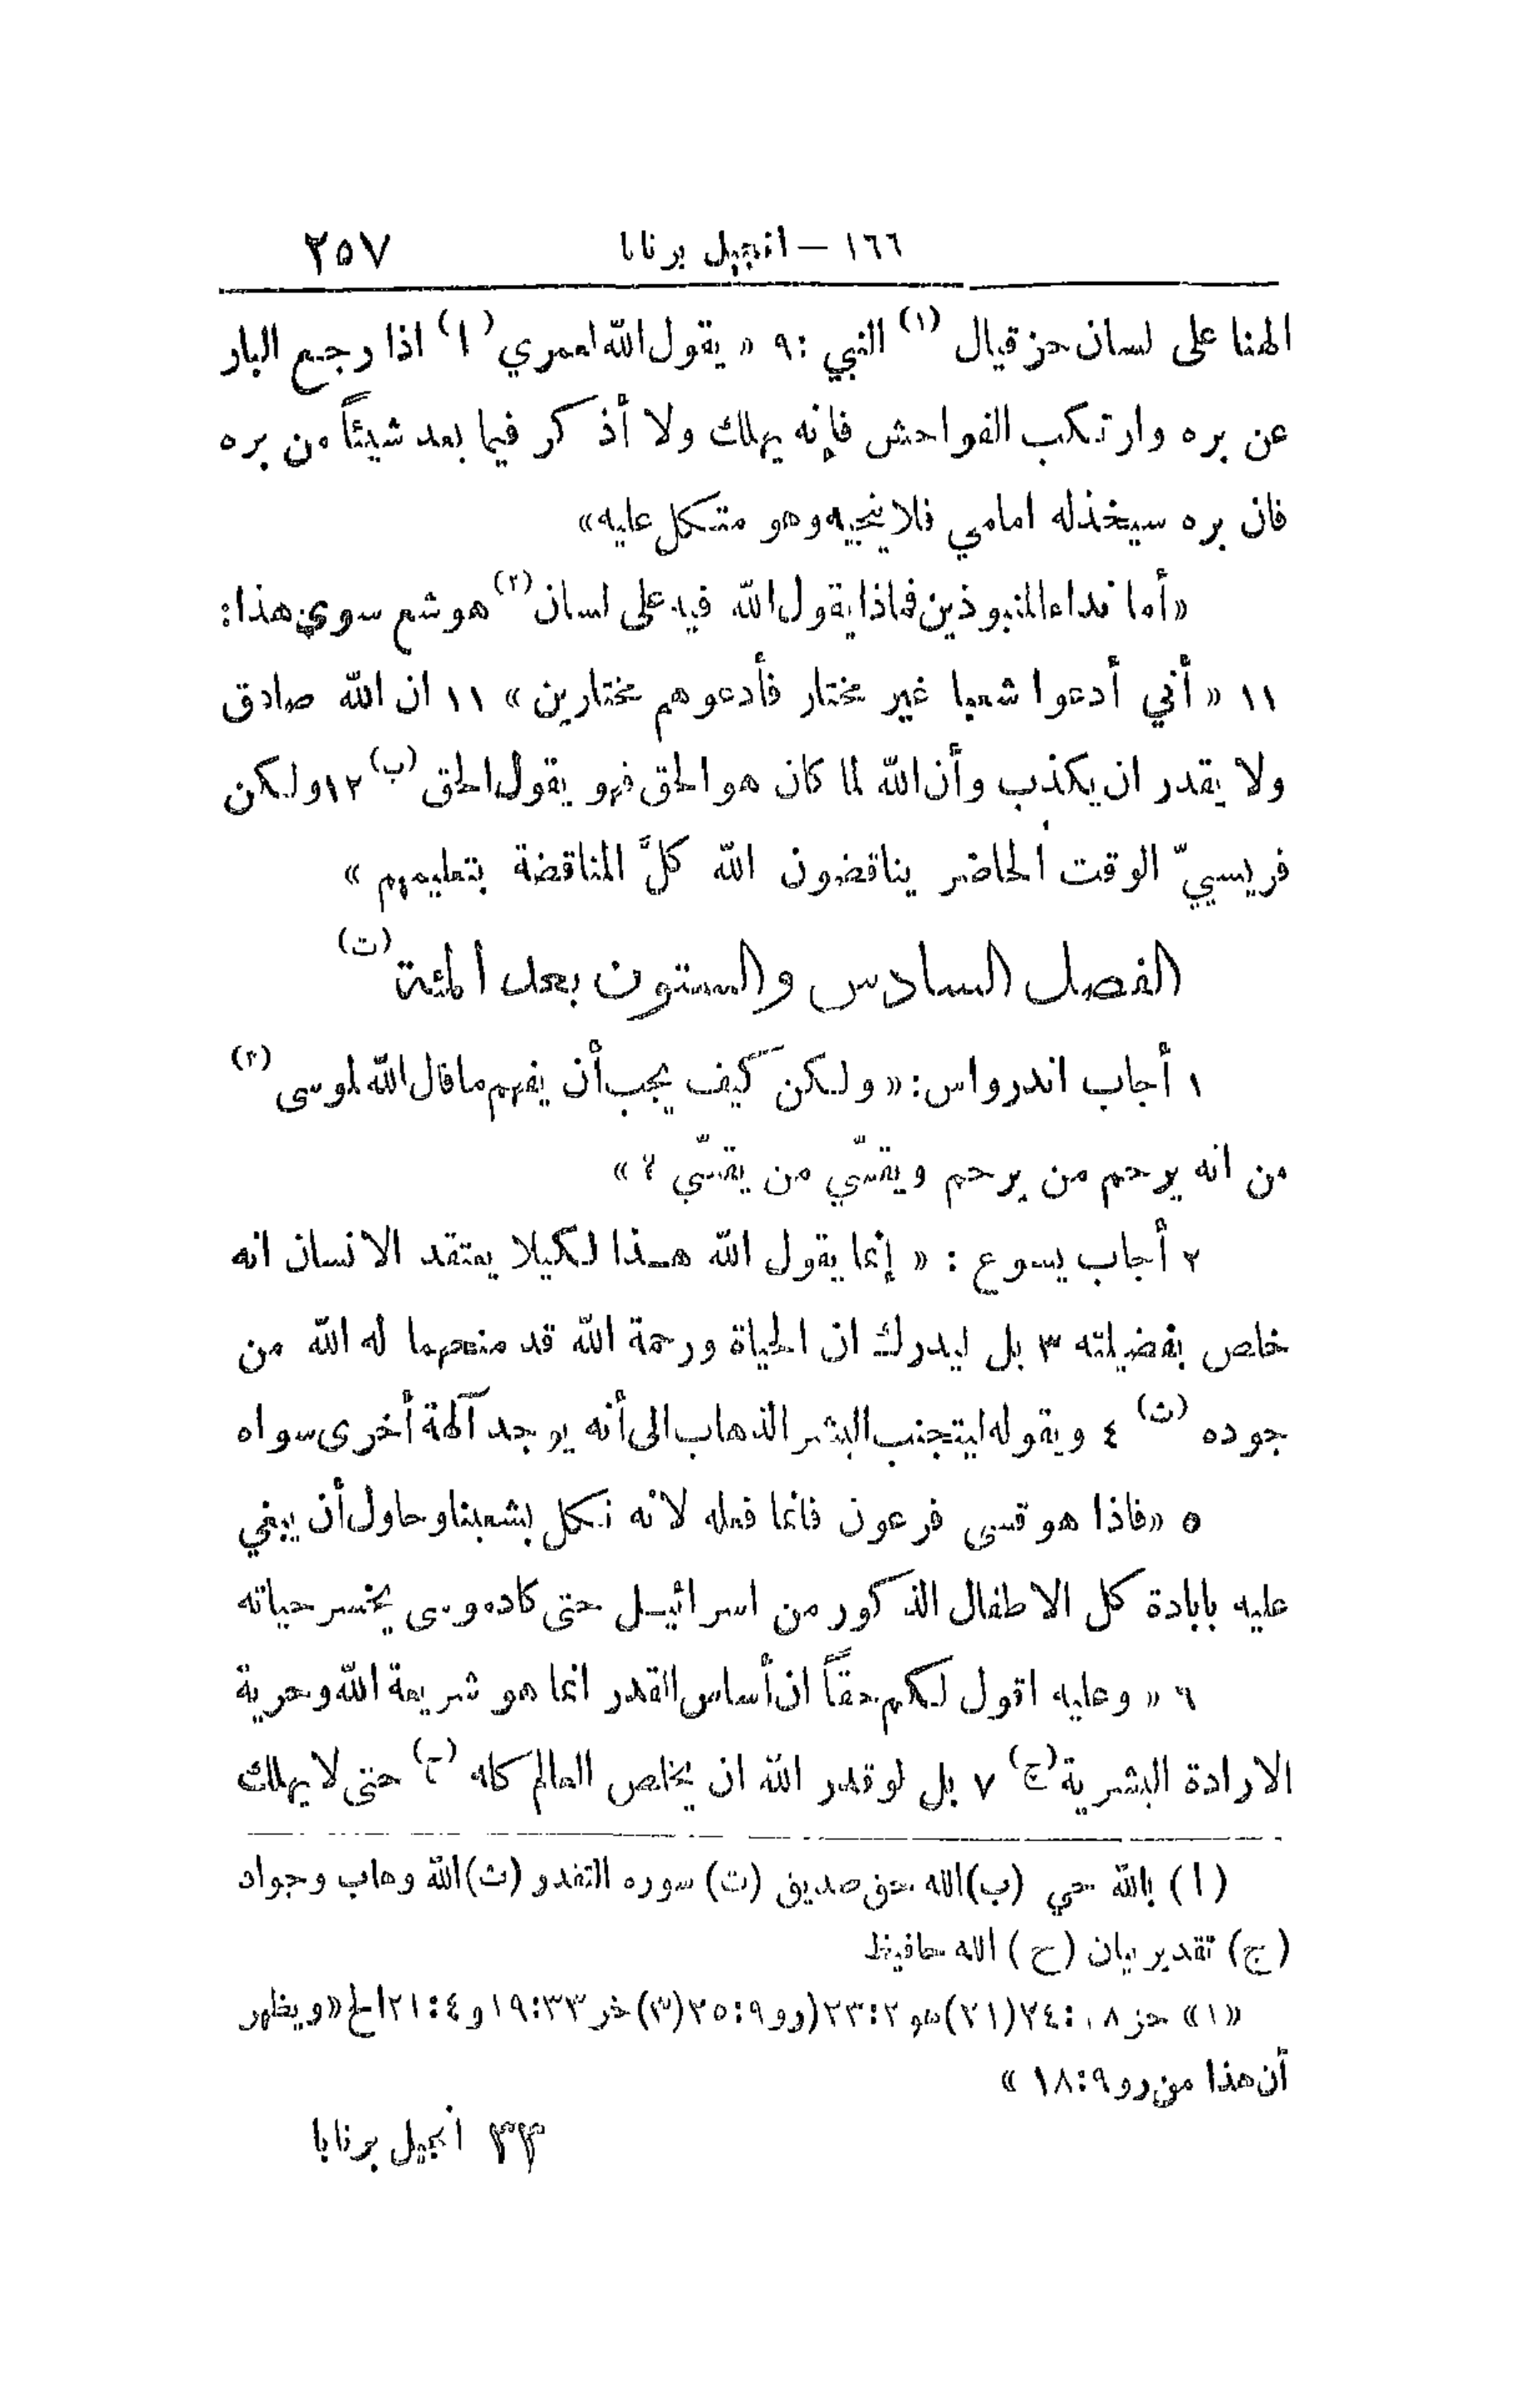 ١٦٦ – انجيل برنابا ٢٥٧
الهنا على لسان حزقيال (١) النبي : ٩ « يقول الله لعمري (ا) اذا رجع البار
عن بره وارتكب الفواحش فإنه يهلك ولا أذكر فيما بعد شيئاً من بره
فان بره سيخذله امامي فلا ينجيه وهو متكل عليه »
« أما نداء المنبوذين فماذا يقول الله فيه على لسان (٢) هوشع سوى هذا :
١١ « أني أدعوا شعبا غير مختار فأدعوهم مختارين » ١١ ان الله صادق
ولا يقدر ان يكذب وأن الله لما كان هو الحق فهو يقول الحق (ب) ١٢ ولكن
فريسيّي الوقت الحاضر يناقضون الله كلَّ المناقضة بتعليمهم »
الفصل السادس والستون بعد المئة (ت)
١ أجاب اندرواس : « ولكن كيف يجب أن يفهم ما قال الله لموسى (٣)
من انه يرحم من يرحم ويقسّي من يقسّي ؟ »
٢ أجاب يسوع : « إنما يقول الله هذا لكيلا يعتقد الانسان انه
خلص بفضيلته ٣ بل ليدرك ان الحياة ورحمة الله قد منحهما له الله من
جوده (ث) ٤ ويقوله ليتجنب البشر الذهاب الى أنه يوجد آلهة أخرى سواه
٥ « فاذا هو قسى فرعون فانما فعله لانه نكل بشعبنا وحاول أن يبغي
عليه بابادة كل الاطفال الذكور من اسرائيل حتى كاد موسى يخسر حياته
٦ « وعليه اقول لكم حقاً ان أساس القدر انما هو شريعة الله وحرية
الارادة البشرية (ج) ٧ بل لو قدر الله ان يخلص العالم كله (ح) حتى لا يهلك
(ا) بالله حي (ب) الله حق صديق (ت) سوره التقدر (ث) الله وهاب وجواد
(ج) تقدير بيان (ح) الله حافيظ
«١» حز ١٨ : ٢٤ (٢١) هو ٢ : ٢٣ (رو ٩ : ٢٥ (٣) خر ٣٣ : ١٩ و ٤ : ٢١ الخ « ويظهر
أن هذا من رو ٩ : ١٨ »
٣٣ انجيل برنابا